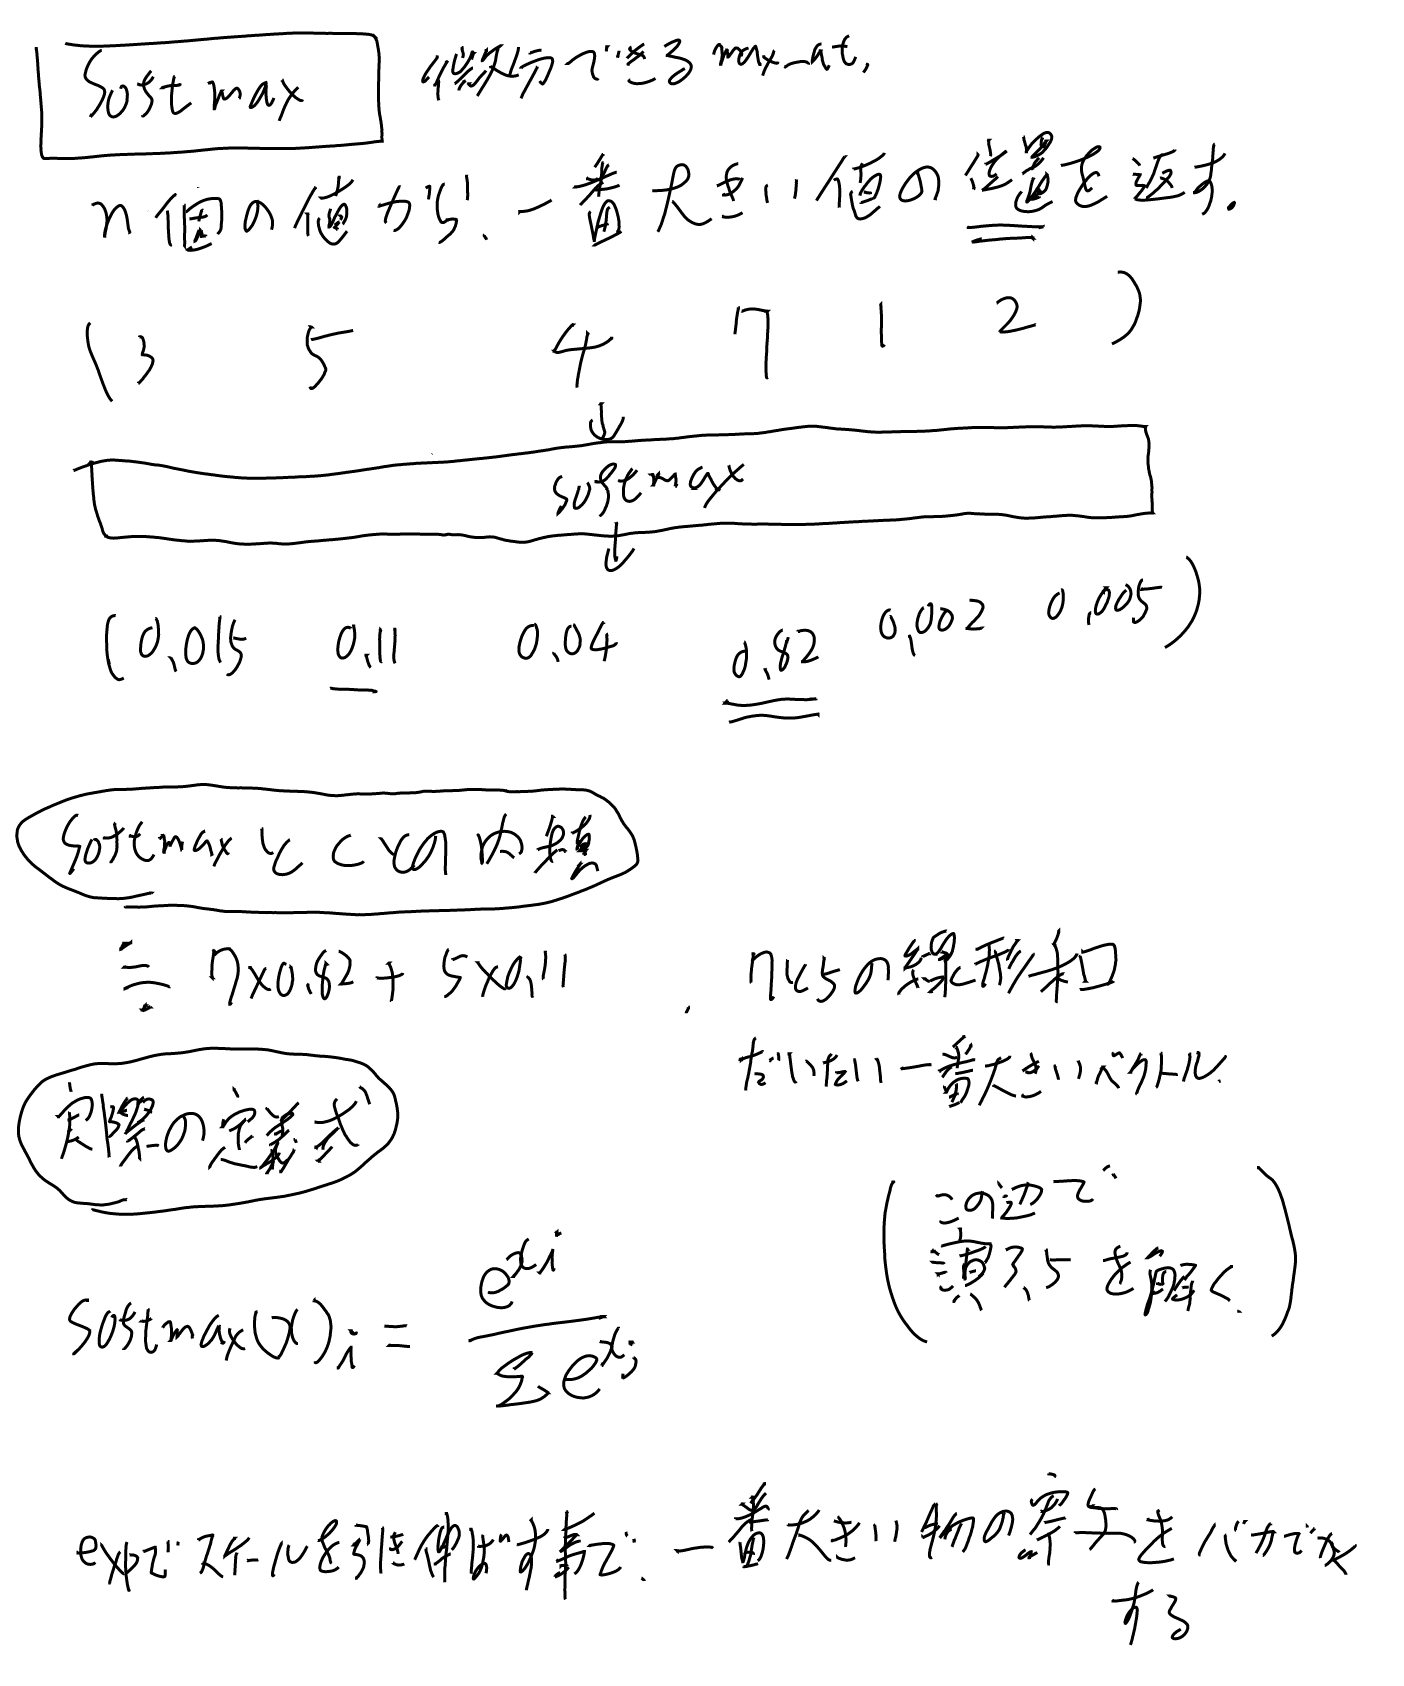 Softmax 微分できるmax_at.
n個の値から、一番大きい値の位置を返す.
(3 5 4 7 1 2)
softmax
(0.015 0.11 0.04 0.82 0.002 0.005)
Softmaxとcとの内積
≒ 7×0.82 + 5×0.11 . 7と5の線形和
だいたい一番大きいベクトル.
実際の定義式
この辺で
演3.5を解く.
Softmax(x)i = e^xi / Σe^xj
expでスケールを引き伸ばす事で、一番大きい物の寄与をバカでかく
する